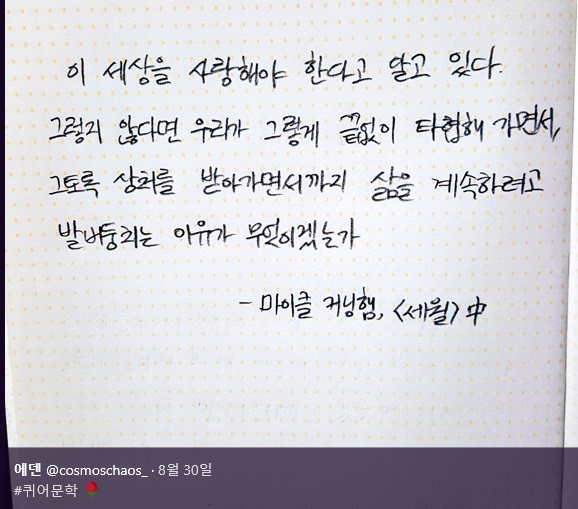 이 세상을 사랑해야 한다고 알고 있다.
그렇지 않다면 우리가 그렇게 끝없이 타협해 가면서,
그토록 상처를 받아가면서까지 삶을 계속하려고
발버둥치는 이유가 무엇이겠는가
- 마이클 커닝햄, <세월> 中
에덴 @cosmoschaos_ · 8월 30일
#퀴어문학 🌹